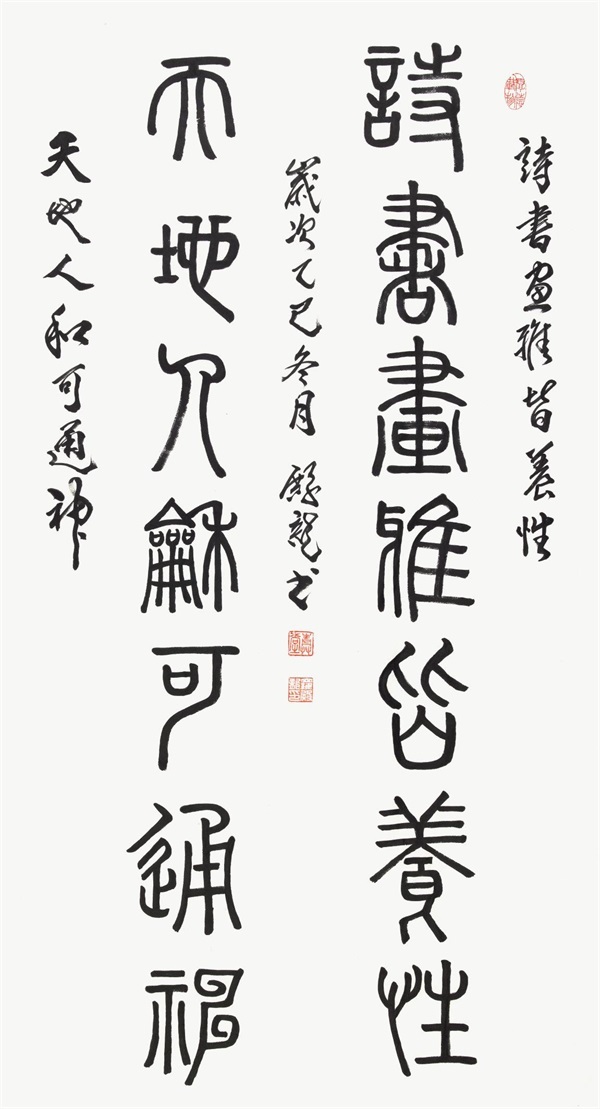 詩書畫雅皆養性
詩書畫雅皆養性
歲次乙巳冬月 龍書
天地人龢可通神
天地人和可通神